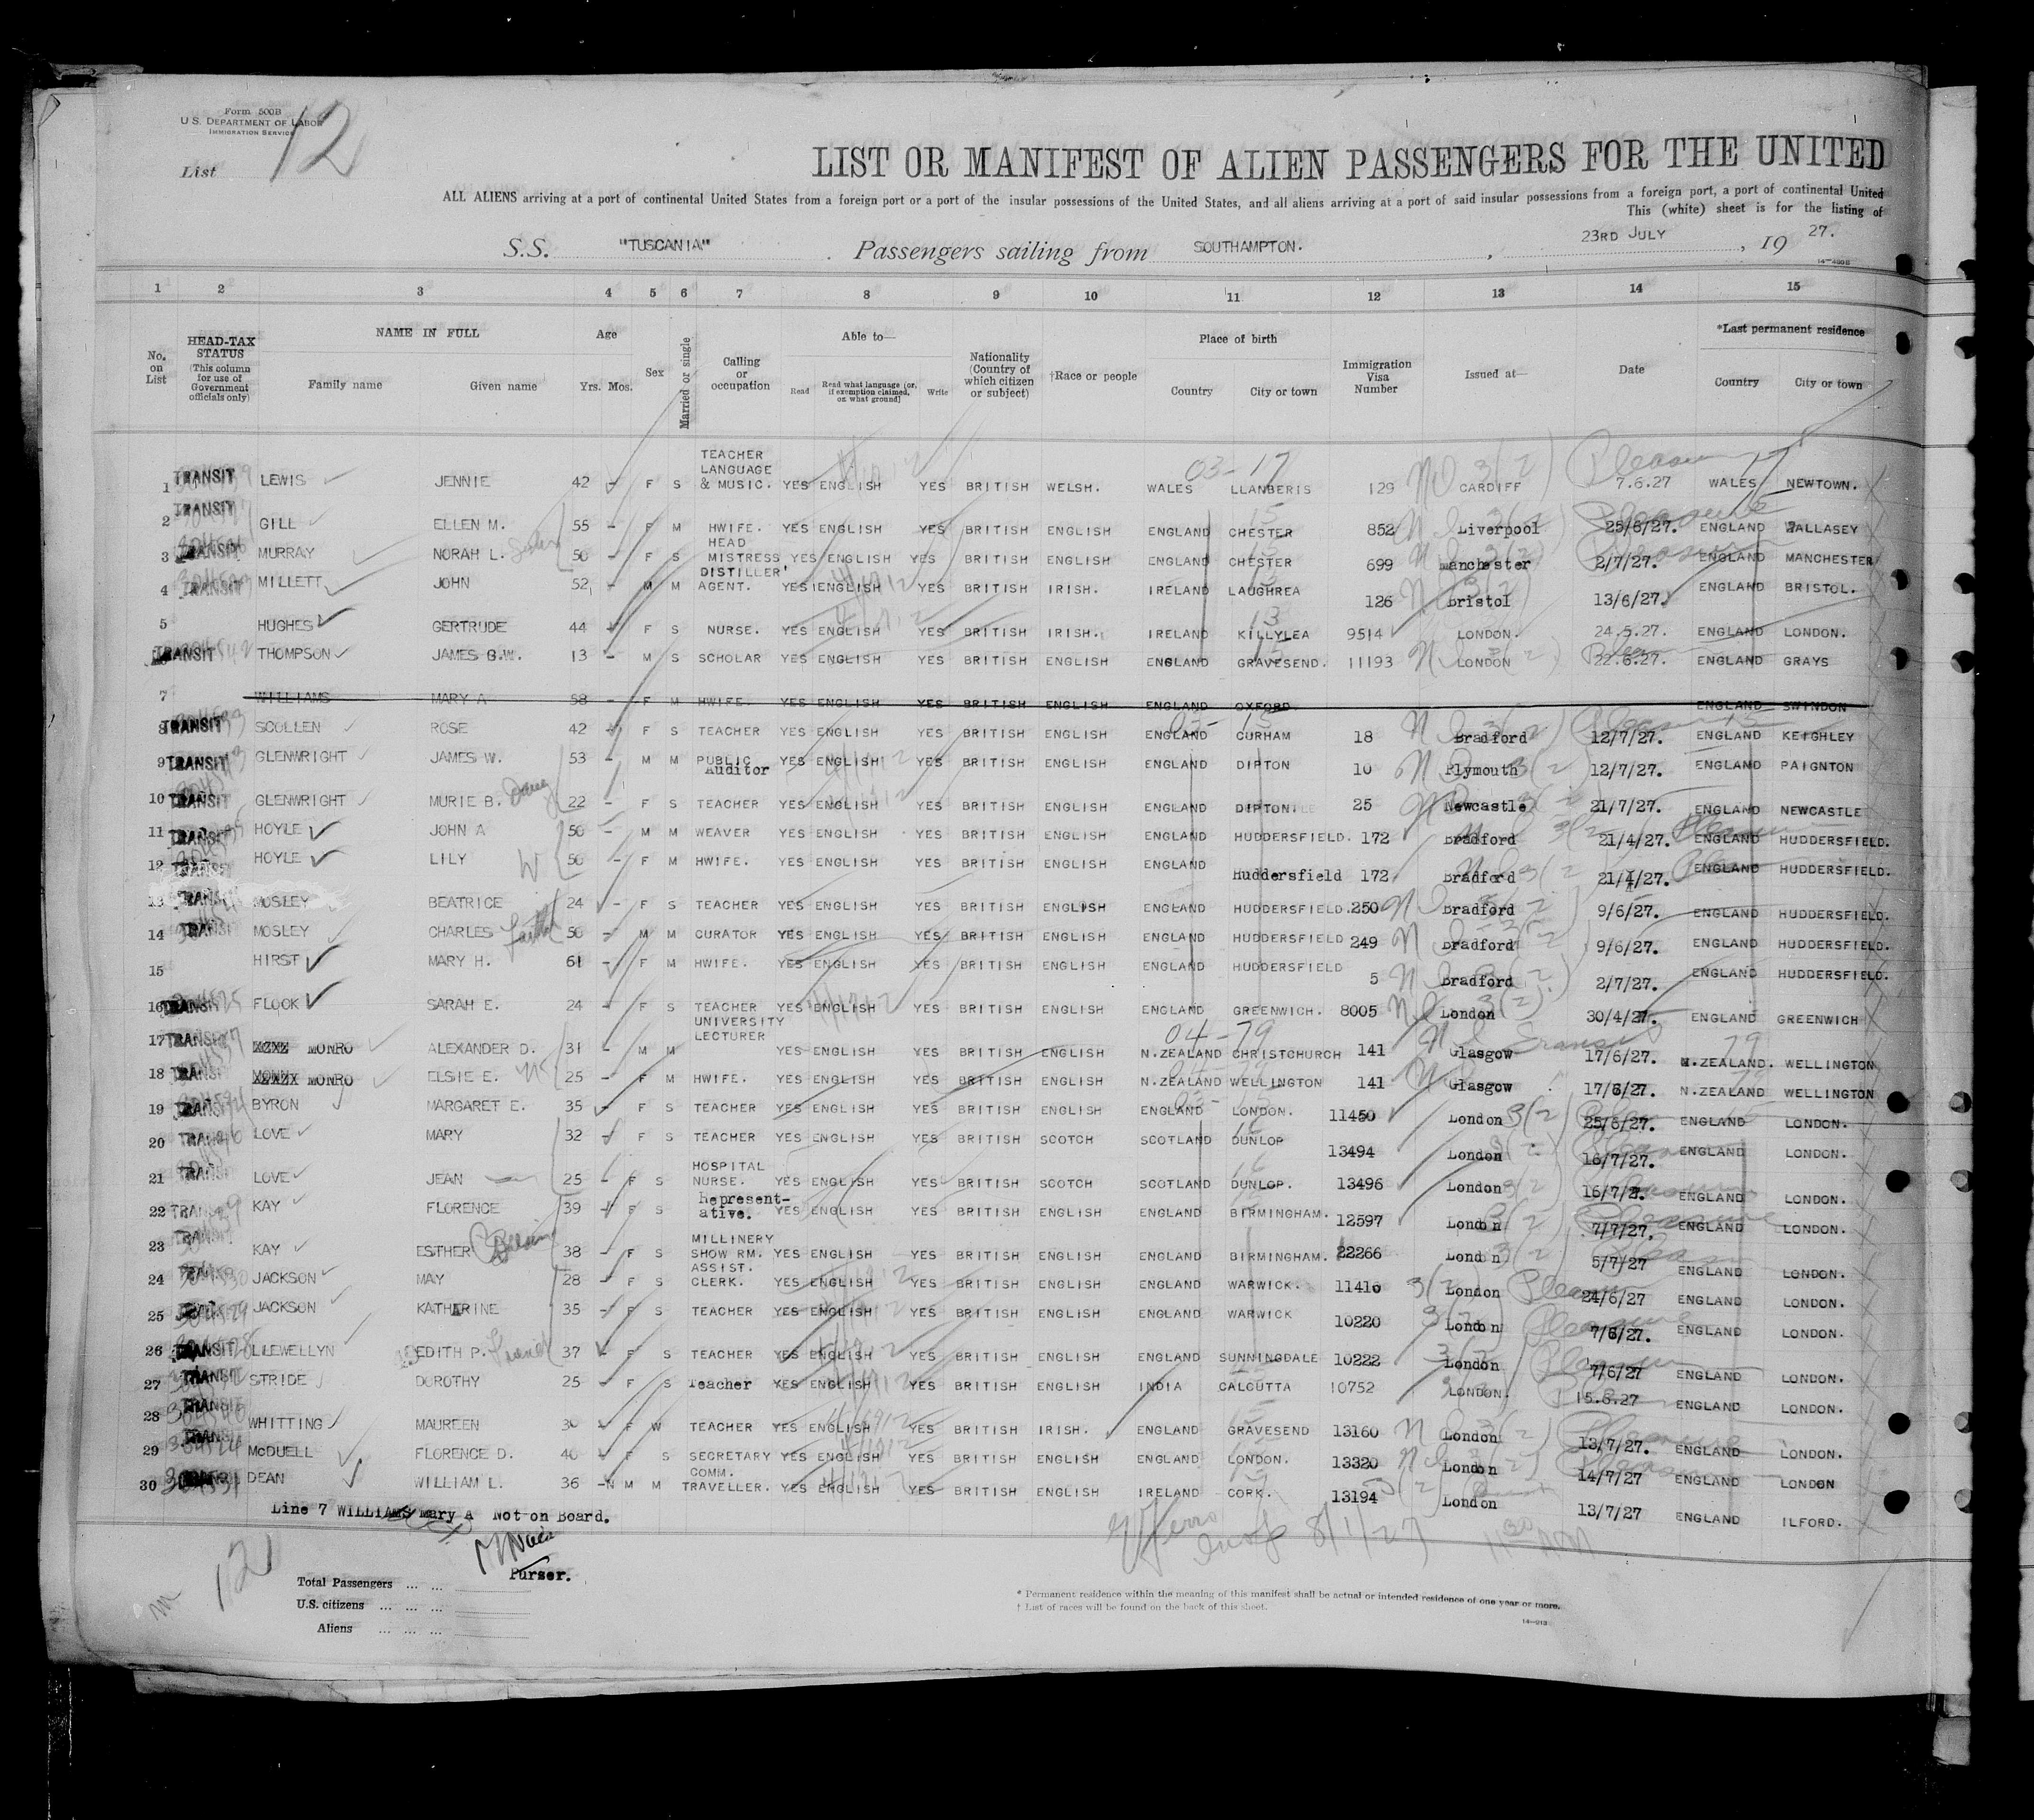 Form 500B
U.S. DEPARTMENT OF LABOR
IMMIGRATION SERVICE
List 12
LIST OR MANIFEST OF ALIEN PASSENGERS FOR THE UNITED
ALL ALIENS arriving at a port of continental United States from a foreign port or a port of the insular possessions of the United States, and all aliens arriving at a port of said insular possessions from a foreign port, a port of continental United
This (white) sheet is for the listing of
S.S. "TUSCANIA" . Passengers sailing from SOUTHAMPTON. , 23RD JULY , 19 27.
1 2 3 4 5 6 7 8 9 10 11 12 13 14 15
No. on List HEAD-TAX STATUS (This column for use of Government officials only) NAME IN FULL Family name Given name Age Yrs. Mos. Sex Married or single Calling or occupation Able to— Read Read what language [or, if exemption claimed, on what ground] Write Nationality (Country of which citizen or subject) †Race or people Place of birth Country City or town Immigration Visa Number Issued at— Date *Last permanent residence Country City or town
1 TRANSIT LEWIS JENNIE 42 – F S TEACHER LANGUAGE & MUSIC. YES ENGLISH YES BRITISH WELSH. WALES LLANBERIS 129 CARDIFF 7.6.27 WALES NEWTOWN.
2 TRANSIT GILL ELLEN M. 55 – F M HWIFE. YES ENGLISH YES BRITISH ENGLISH ENGLAND CHESTER 852 Liverpool 25/6/27. ENGLAND WALLASEY
3 TRANSIT MURRAY NORAH L. Sister 50 – F S HEAD MISTRESS YES ENGLISH YES BRITISH ENGLISH ENGLAND CHESTER 699 Manchester 2/7/27. ENGLAND MANCHESTER
4 TRANSIT MILLETT JOHN 52 – M M DISTILLER' AGENT. YES ENGLISH YES BRITISH IRISH. IRELAND LAUGHREA 126 Bristol 13/6/27. ENGLAND BRISTOL.
5 HUGHES GERTRUDE 44 – F S NURSE. YES ENGLISH YES BRITISH IRISH. IRELAND KILLYLEA 9514 LONDON. 24.5.27. ENGLAND LONDON.
TRANSIT THOMPSON JAMES G.W. 13 – M S SCHOLAR YES ENGLISH YES BRITISH ENGLISH ENGLAND GRAVESEND. 11193 LONDON 22.6.27. ENGLAND GRAYS
7 WILLIAMS MARY A 58 – F M HWIFE. YES ENGLISH YES BRITISH ENGLISH ENGLAND OXFORD ENGLAND SWINDON
8 TRANSIT SCOLLEN ROSE 42 – F S TEACHER YES ENGLISH YES BRITISH ENGLISH ENGLAND CURHAM 18 Bradford 12/7/27. ENGLAND KEIGHLEY
9 TRANSIT GLENWRIGHT JAMES W. 53 – M M PUBLIC Auditor YES ENGLISH YES BRITISH ENGLISH ENGLAND DIPTON 10 Plymouth 12/7/27. ENGLAND PAIGNTON
10 TRANSIT GLENWRIGHT MURIE B. 22 – F S TEACHER YES ENGLISH YES BRITISH ENGLISH ENGLAND DIPTON. 25 Newcastle 21/7/27. ENGLAND NEWCASTLE
11 TRANSIT HOYLE JOHN A 50 – M M WEAVER YES ENGLISH YES BRITISH ENGLISH ENGLAND HUDDERSFIELD. 172 Bradford 21/4/27. ENGLAND HUDDERSFIELD.
12 TRANSIT HOYLE LILY W 50 – F M HWIFE. YES ENGLISH YES BRITISH ENGLISH ENGLAND Huddersfield 172 Bradford 21/4/27. ENGLAND HUDDERSFIELD.
13 TRANSIT MOSLEY BEATRICE 24 – F S TEACHER YES ENGLISH YES BRITISH ENGLISH ENGLAND HUDDERSFIELD. 250 Bradford 9/6/27. ENGLAND HUDDERSFIELD.
14 TRANSIT MOSLEY CHARLES Father 50 – M M CURATOR YES ENGLISH YES BRITISH ENGLISH ENGLAND HUDDERSFIELD 249 Bradford 9/6/27. ENGLAND HUDDERSFIELD.
15 HIRST MARY H. 61 – F M HWIFE. YES ENGLISH YES BRITISH ENGLISH ENGLAND HUDDERSFIELD 5 Bradford 2/7/27. ENGLAND HUDDERSFIELD.
16 TRANSIT FLOOK SARAH E. 24 – F S TEACHER YES ENGLISH YES BRITISH ENGLISH ENGLAND GREENWICH. 8005 London 30/4/27. ENGLAND GREENWICH
17 TRANSIT MONRO ALEXANDER D. 31 – M M UNIVERSITY LECTURER YES ENGLISH YES BRITISH ENGLISH N.ZEALAND CHRISTCHURCH 141 Glasgow 17/6/27. N.ZEALAND. WELLINGTON
18 TRANSIT MONRO ELSIE E. 25 – F M HWIFE. YES ENGLISH YES BRITISH ENGLISH N.ZEALAND WELLINGTON 141 Glasgow 17/6/27. N.ZEALAND WELLINGTON
19 TRANSIT BYRON MARGARET E. 35 – F S TEACHER YES ENGLISH YES BRITISH ENGLISH ENGLAND LONDON. 11450 London 25/6/27. ENGLAND LONDON.
20 TRANSIT LOVE MARY 32 – F S TEACHER YES ENGLISH YES BRITISH SCOTCH SCOTLAND DUNLOP 13494 London 16/7/27. ENGLAND LONDON.
21 TRANSIT LOVE JEAN 25 – F S HOSPITAL NURSE. YES ENGLISH YES BRITISH SCOTCH SCOTLAND DUNLOP. 13496 London 16/7/2. ENGLAND LONDON.
22 TRANSIT KAY FLORENCE 39 – F S Represent- ative. YES ENGLISH YES BRITISH ENGLISH ENGLAND BIRMINGHAM. 12597 London 7/7/27. ENGLAND LONDON.
23 TRANSIT KAY ESTHER 38 – F S MILLINERY SHOW RM. ASSIST. YES ENGLISH YES BRITISH ENGLISH ENGLAND BIRMINGHAM. 22266 London 5/7/27 ENGLAND LONDON.
24 TRANSIT JACKSON MAY 28 – F S CLERK. YES ENGLISH YES BRITISH ENGLISH ENGLAND WARWICK. 11416 London 24/6/27 ENGLAND LONDON.
25 JACKSON KATHERINE 35 – F S TEACHER YES ENGLISH YES BRITISH ENGLISH ENGLAND WARWICK 10220 London 7/6/27. ENGLAND LONDON.
26 TRANSIT LLEWELLYN EDITH P. Friend 37 – F S TEACHER YES ENGLISH YES BRITISH ENGLISH ENGLAND SUNNINGDALE 10222 London 7/6/27 ENGLAND LONDON.
27 TRANSIT STRIDE DOROTHY 25 – F S Teacher YES ENGLISH YES BRITISH ENGLISH INDIA CALCUTTA 10752 LONDON. 15.6.27 ENGLAND LONDON.
28 TRANSIT WHITTING MAUREEN 30 – F W TEACHER YES ENGLISH YES BRITISH IRISH. ENGLAND GRAVESEND 13160 London 13/7/27. ENGLAND LONDON.
29 TRANSIT McDUELL FLORENCE D. 40 – F S SECRETARY YES ENGLISH YES BRITISH ENGLISH ENGLAND LONDON. 13320 London 14/7/27 ENGLAND LONDON
30 DEAN WILLIAM L. 36 – M M COMM. TRAVELLER. YES ENGLISH YES BRITISH ENGLISH IRELAND CORK. 13194 London 13/7/27 ENGLAND ILFORD.
Line 7 WILLIAMS Mary A Not on Board.
Purser.
8/1/27
121
Total Passengers ... ...
U.S. citizens ... ... ...
Aliens ... ... ...
* Permanent residence within the meaning of this manifest shall be actual or intended residence of one year or more.
† List of races will be found on the back of this sheet.